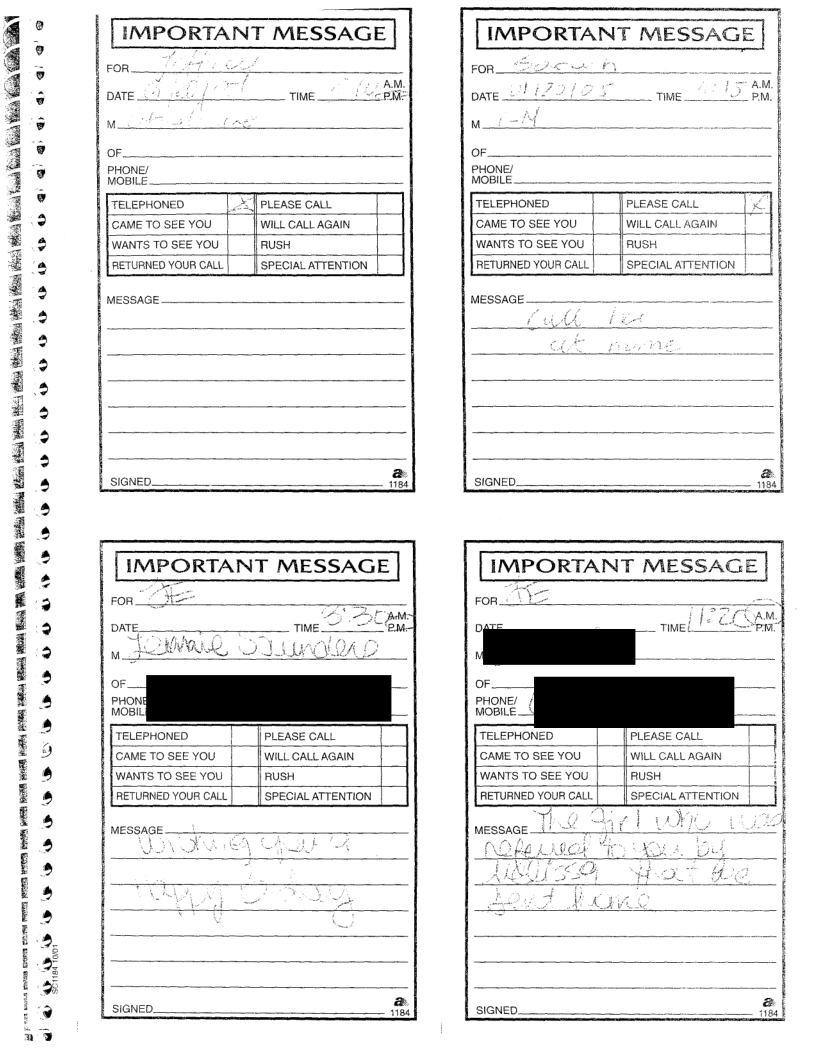 IMPORTANT MESSAGE
FOR Jeffrey
DATE TIME A.M. P.M.
M
OF
PHONE/
MOBILE
TELEPHONED X PLEASE CALL
CAME TO SEE YOU WILL CALL AGAIN
WANTS TO SEE YOU RUSH
RETURNED YOUR CALL SPECIAL ATTENTION
MESSAGE
SIGNED
a
1184
IMPORTANT MESSAGE
FOR Sarah
DATE /20/05 TIME :15 A.M. P.M.
M
OF
PHONE/
MOBILE
TELEPHONED PLEASE CALL X
CAME TO SEE YOU WILL CALL AGAIN
WANTS TO SEE YOU RUSH
RETURNED YOUR CALL SPECIAL ATTENTION
MESSAGE
call
at
SIGNED
a
1184
IMPORTANT MESSAGE
FOR JE
DATE TIME 3:30 A.M. P.M.
M Saunders
OF
PHONE
MOBIL
TELEPHONED PLEASE CALL
CAME TO SEE YOU WILL CALL AGAIN
WANTS TO SEE YOU RUSH
RETURNED YOUR CALL SPECIAL ATTENTION
MESSAGE
Wishing you a
happy b-day
SIGNED
a
1184
IMPORTANT MESSAGE
FOR JE
DATE TIME 11:20 A.M. P.M.
M
OF
PHONE/
MOBILE
TELEPHONED PLEASE CALL
CAME TO SEE YOU WILL CALL AGAIN
WANTS TO SEE YOU RUSH
RETURNED YOUR CALL SPECIAL ATTENTION
MESSAGE The girl who was
referred to you by
that we
sent home
SIGNED
a
1184
SC1184-10/01